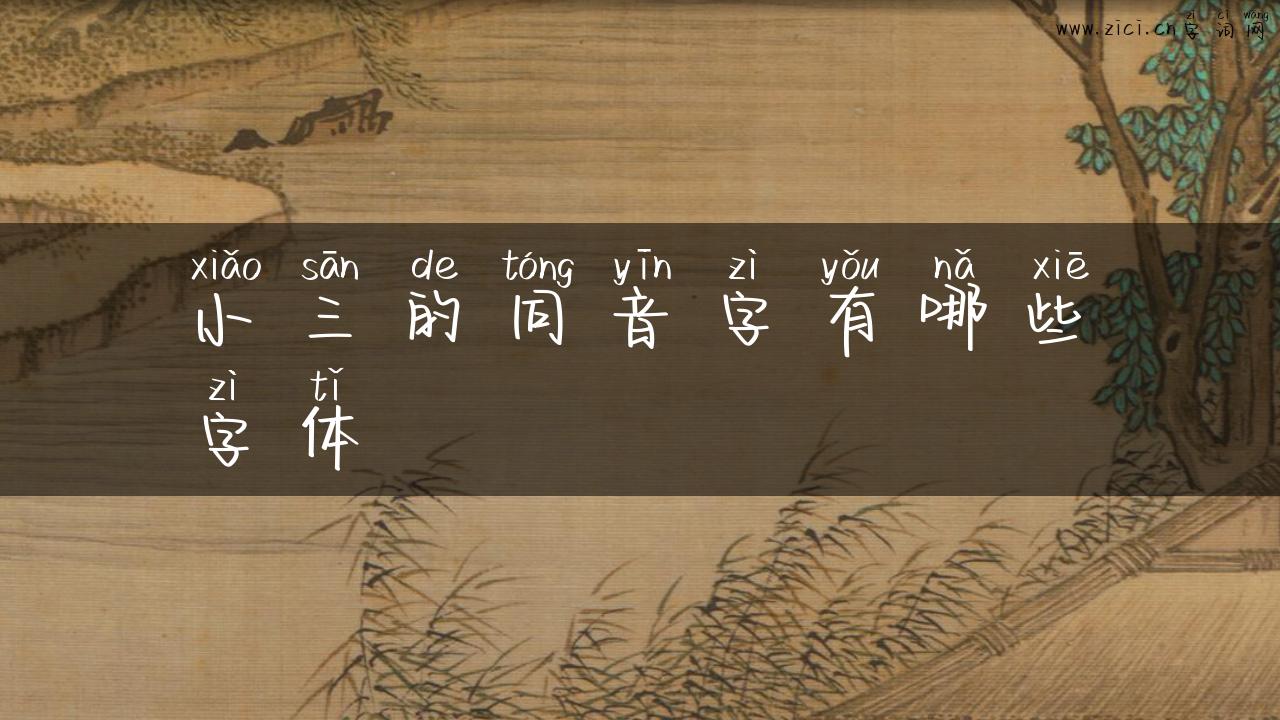 zì cí wǎng
www.zici.cn字词网
xiǎo sān de tóng yīn zì yǒu nǎ xiē
小三的同音字有哪些
zì tǐ
字体